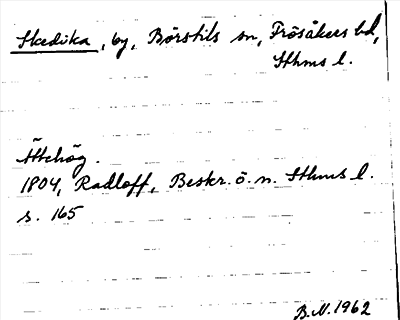 Skedika, by, Börstils sn, Frösåkers hd,
Sthms l.
Ättehög.
1804, Radloff, Beskr. ö. n. Sthms l.
s. 165
B.N. 1962